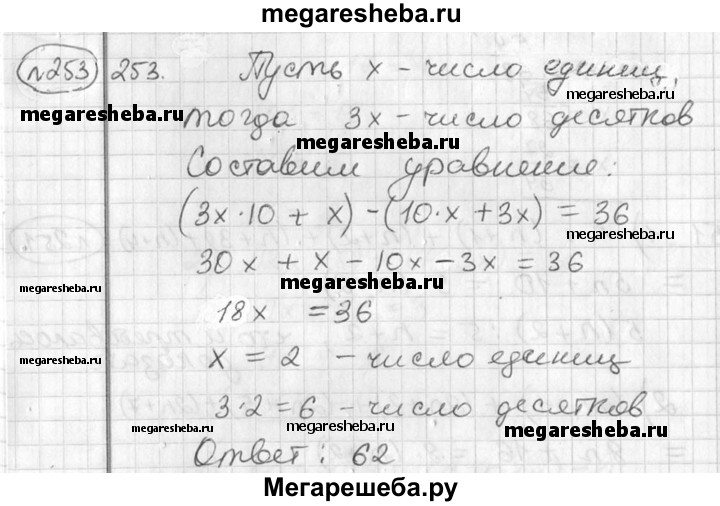 megaresheba.ru
№253 253. Пусть x - число единиц,
megaresheba.ru
megaresheba.ru
тогда 3x - число десятков
megaresheba.ru
Составим уравнение:
(3x·10 + x) - (10·x + 3x) = 36
megaresheba.ru
30x + x - 10x - 3x = 36
megaresheba.ru
megaresheba.ru
18x = 36
x = 2 - число единиц
megaresheba.ru
megaresheba.ru
3·2 = 6 - число десятков
megaresheba.ru
megaresheba.ru
Ответ: 62
Мегарешеба.ру